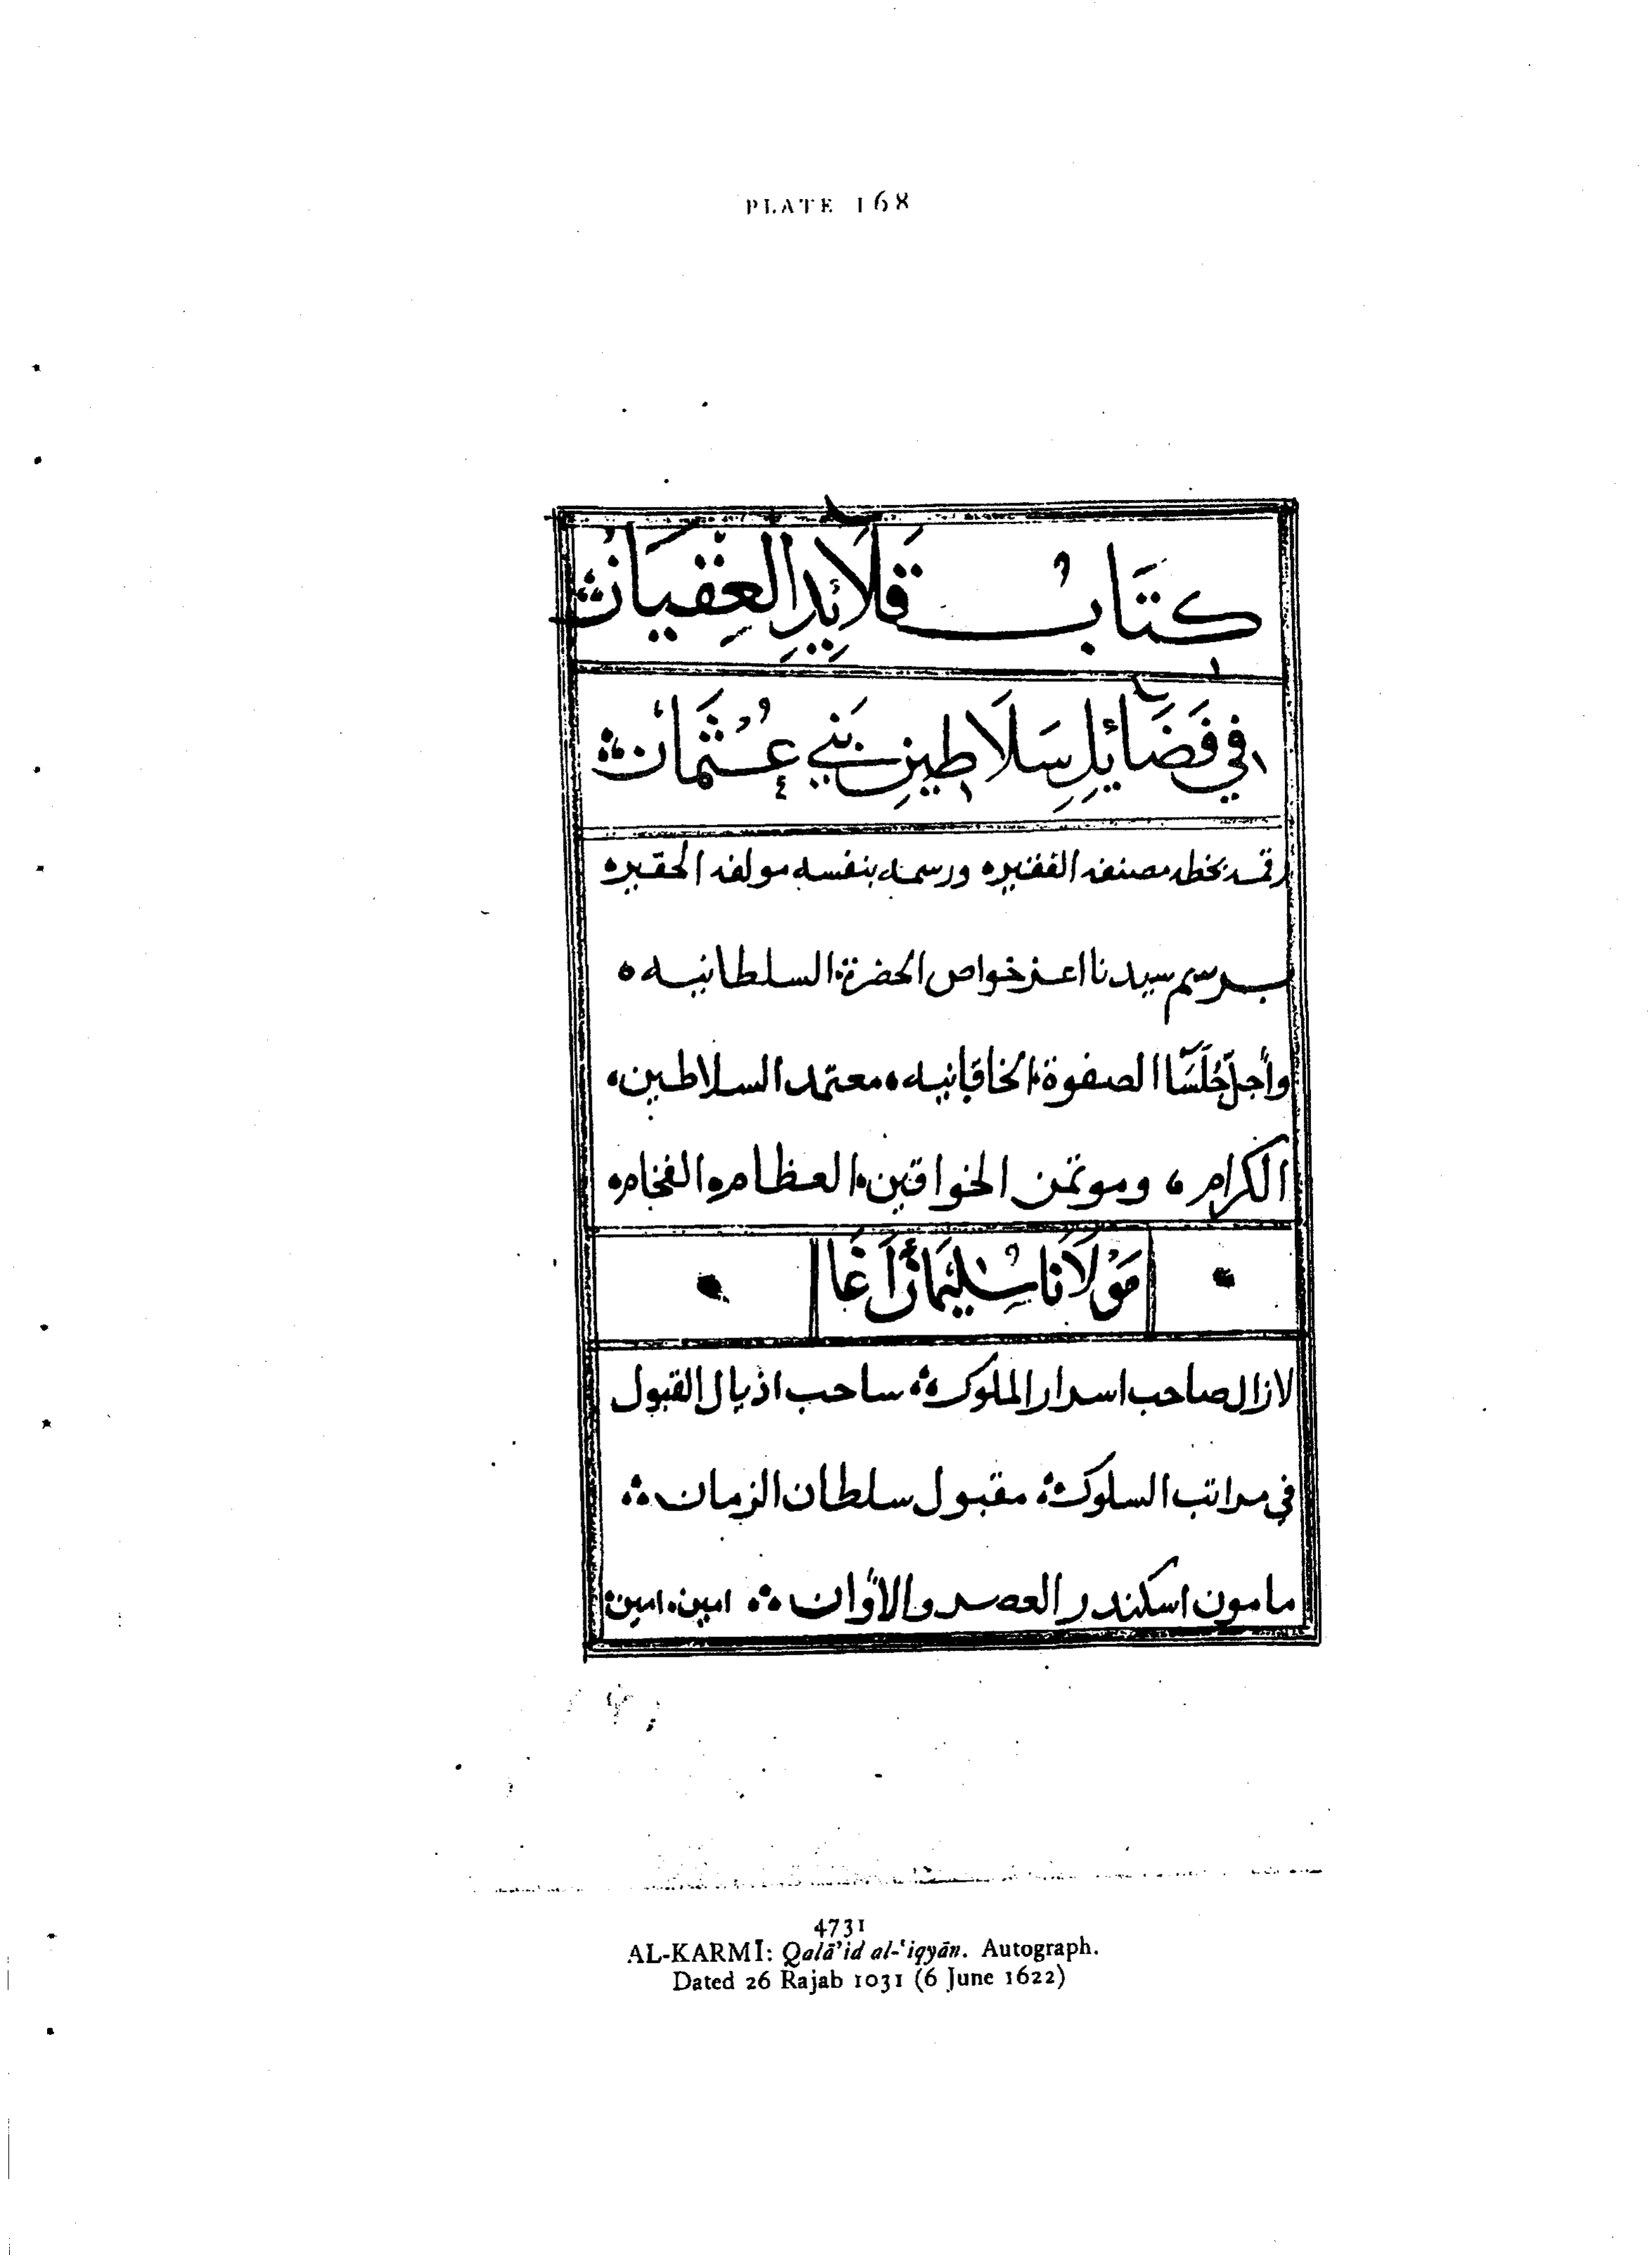 PLATE 168
كتَاب قَلَائِدِ العِقْيَان
في فَضَائِلِ سَلَاطِينِ بَني عُثمَان
رقمه بخطه مصنفه الفقير ورسمه بنفسه مولفه الحقير
برسم سيدنا اعز خواص الحضرة السلطانيه
وأجلّ جُلَسَآ الصفوة الخاقانيه معتمد السلاطين
الكرام وموتمن الخواقين العظام الفخام
مَوْلَانا سُلَيْمان آغَا
لازال صاحب اسرار الملوك ساحب اذيال القبول
في مراتب السلوك مقبول سلطان الزمان
مامون اسكندر العصر والاوان امين امين
4731
AL-KARMĪ: Qalā'id al-ʿiqyān. Autograph.
Dated 26 Rajab 1031 (6 June 1622)